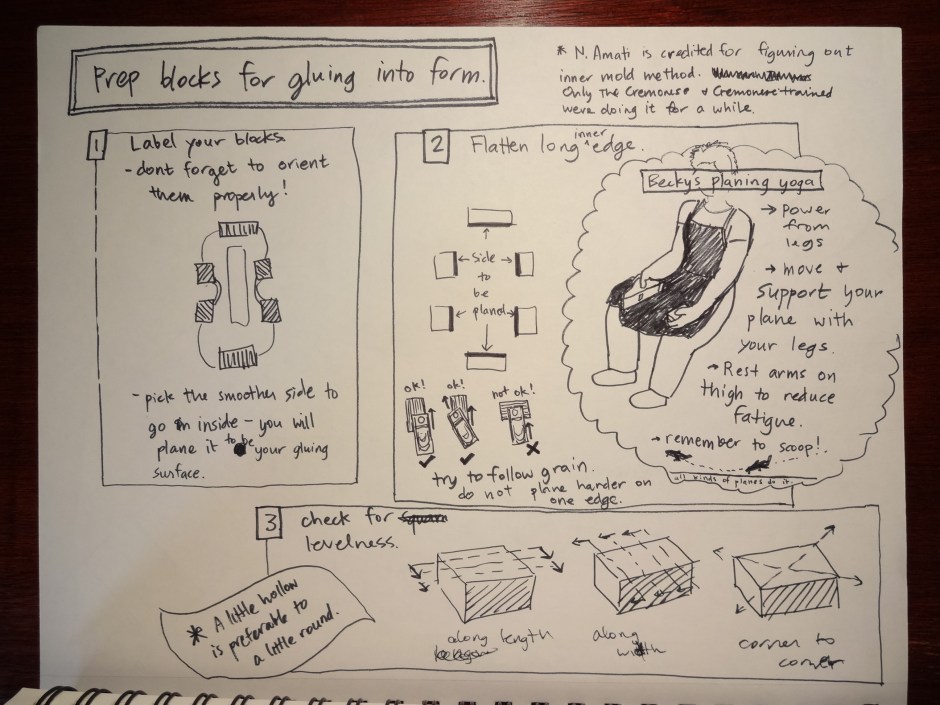 Prep blocks for gluing into form.
* N. Amati is credited for figuring out
inner mold method.
Only the Cremonese & Cremonese trained
were doing it for a while.
1 Label your blocks
- dont forget to orient
them properly!
- pick the smoother side to
go in inside - you will
plane it to be your gluing
surface.
2 Flatten long inner edge.
← side →
to
be
← planed →
ok! ok! not ok!
try to follow grain.
do not plane harder on
one edge.
Becky's planing yoga
→ power
from
legs
→ move &
support your
plane with
your legs.
→ Rest arms on
thigh to reduce
fatigue.
→ remember to scoop!
all kinds of planes do it.
3 check for
levelness.
* A little hollow
is preferable to
a little round.
along length
along
width
corner to
corner